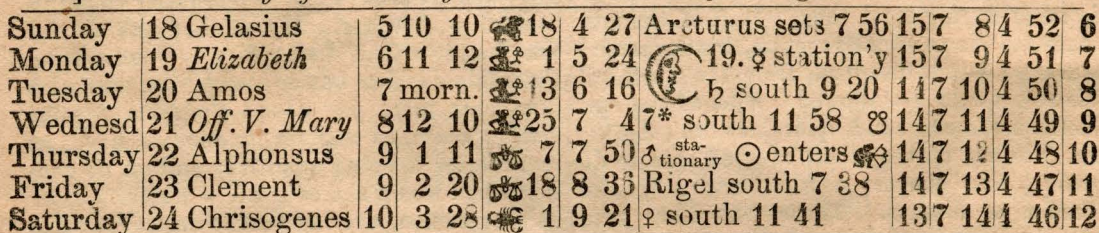 Sunday 18 Gelasius 5 10 10 18 4 27 Arcturus sets 7 56 15 7 8 4 52 6
Monday 19 Elizabeth 6 11 12 1 5 24 19. ☿ station'y 15 7 9 4 51 7
Tuesday 20 Amos 7 morn. 13 6 16 ♄ south 9 20 14 7 10 4 50 8
Wednesd 21 Off. V. Mary 8 12 10 25 7 4 7* south 11 58 ☋ 14 7 11 4 49 9
Thursday 22 Alphonsus 9 1 11 ♎ 7 7 50 ♂ stationary ☉ enters ♐ 14 7 12 4 48 10
Friday 23 Clement 9 2 20 ♎ 18 8 36 Rigel south 7 38 14 7 13 4 47 11
Saturday 24 Chrisogenes 10 3 28 ♏ 1 9 21 ♀ south 11 41 13 7 14 4 46 12